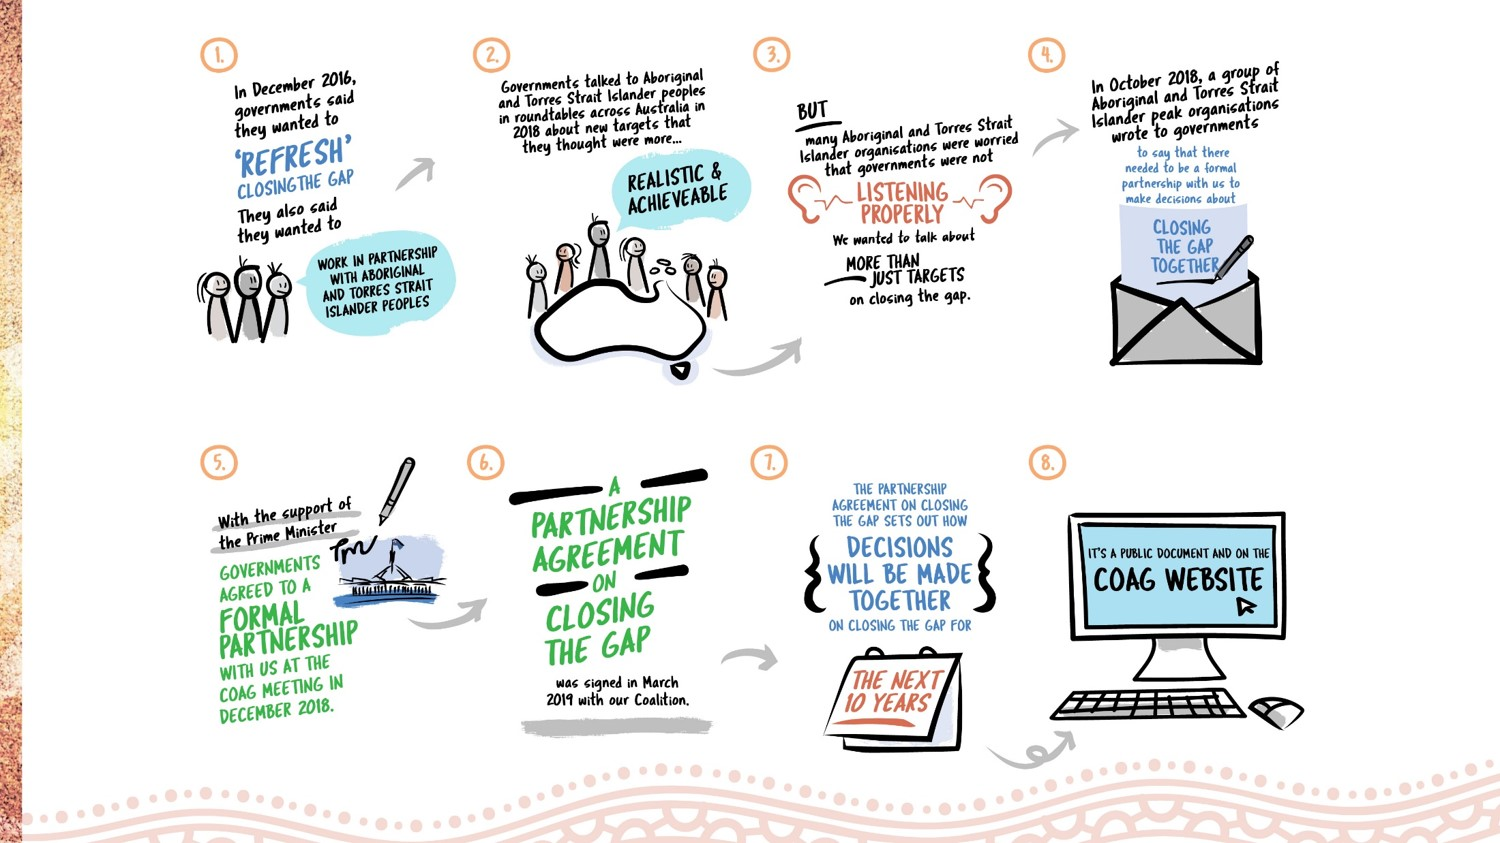 1.
In December 2016,
governments said
they wanted to
'REFRESH'
CLOSING THE GAP
They also said
they wanted to
WORK IN PARTNERSHIP
WITH ABORIGINAL
AND TORRES STRAIT
ISLANDER PEOPLES
2.
Governments talked to Aboriginal
and Torres Strait Islander peoples
in roundtables across Australia in
2018 about new targets that
they thought were more...
REALISTIC &
ACHIEVEABLE
3.
BUT
many Aboriginal and Torres Strait
Islander organisations were worried
that governments were not
LISTENING
PROPERLY
We wanted to talk about
MORE THAN
JUST TARGETS
on closing the gap.
4.
In October 2018, a group of
Aboriginal and Torres Strait
Islander peak organisations
wrote to governments
to say that there
needed to be a formal
partnership with us to
make decisions about
CLOSING
THE GAP
TOGETHER
5.
With the support of
the Prime Minister
GOVERNMENTS
AGREED TO A
FORMAL
PARTNERSHIP
WITH US AT THE
COAG MEETING IN
DECEMBER 2018.
6.
A
PARTNERSHIP
AGREEMENT
ON
CLOSING
THE GAP
was signed in March
2019 with our Coalition.
7.
THE PARTNERSHIP
AGREEMENT ON CLOSING
THE GAP SETS OUT HOW
DECISIONS
WILL BE MADE
TOGETHER
ON CLOSING THE GAP FOR
THE NEXT
10 YEARS
8.
IT'S A PUBLIC DOCUMENT AND ON THE
COAG WEBSITE